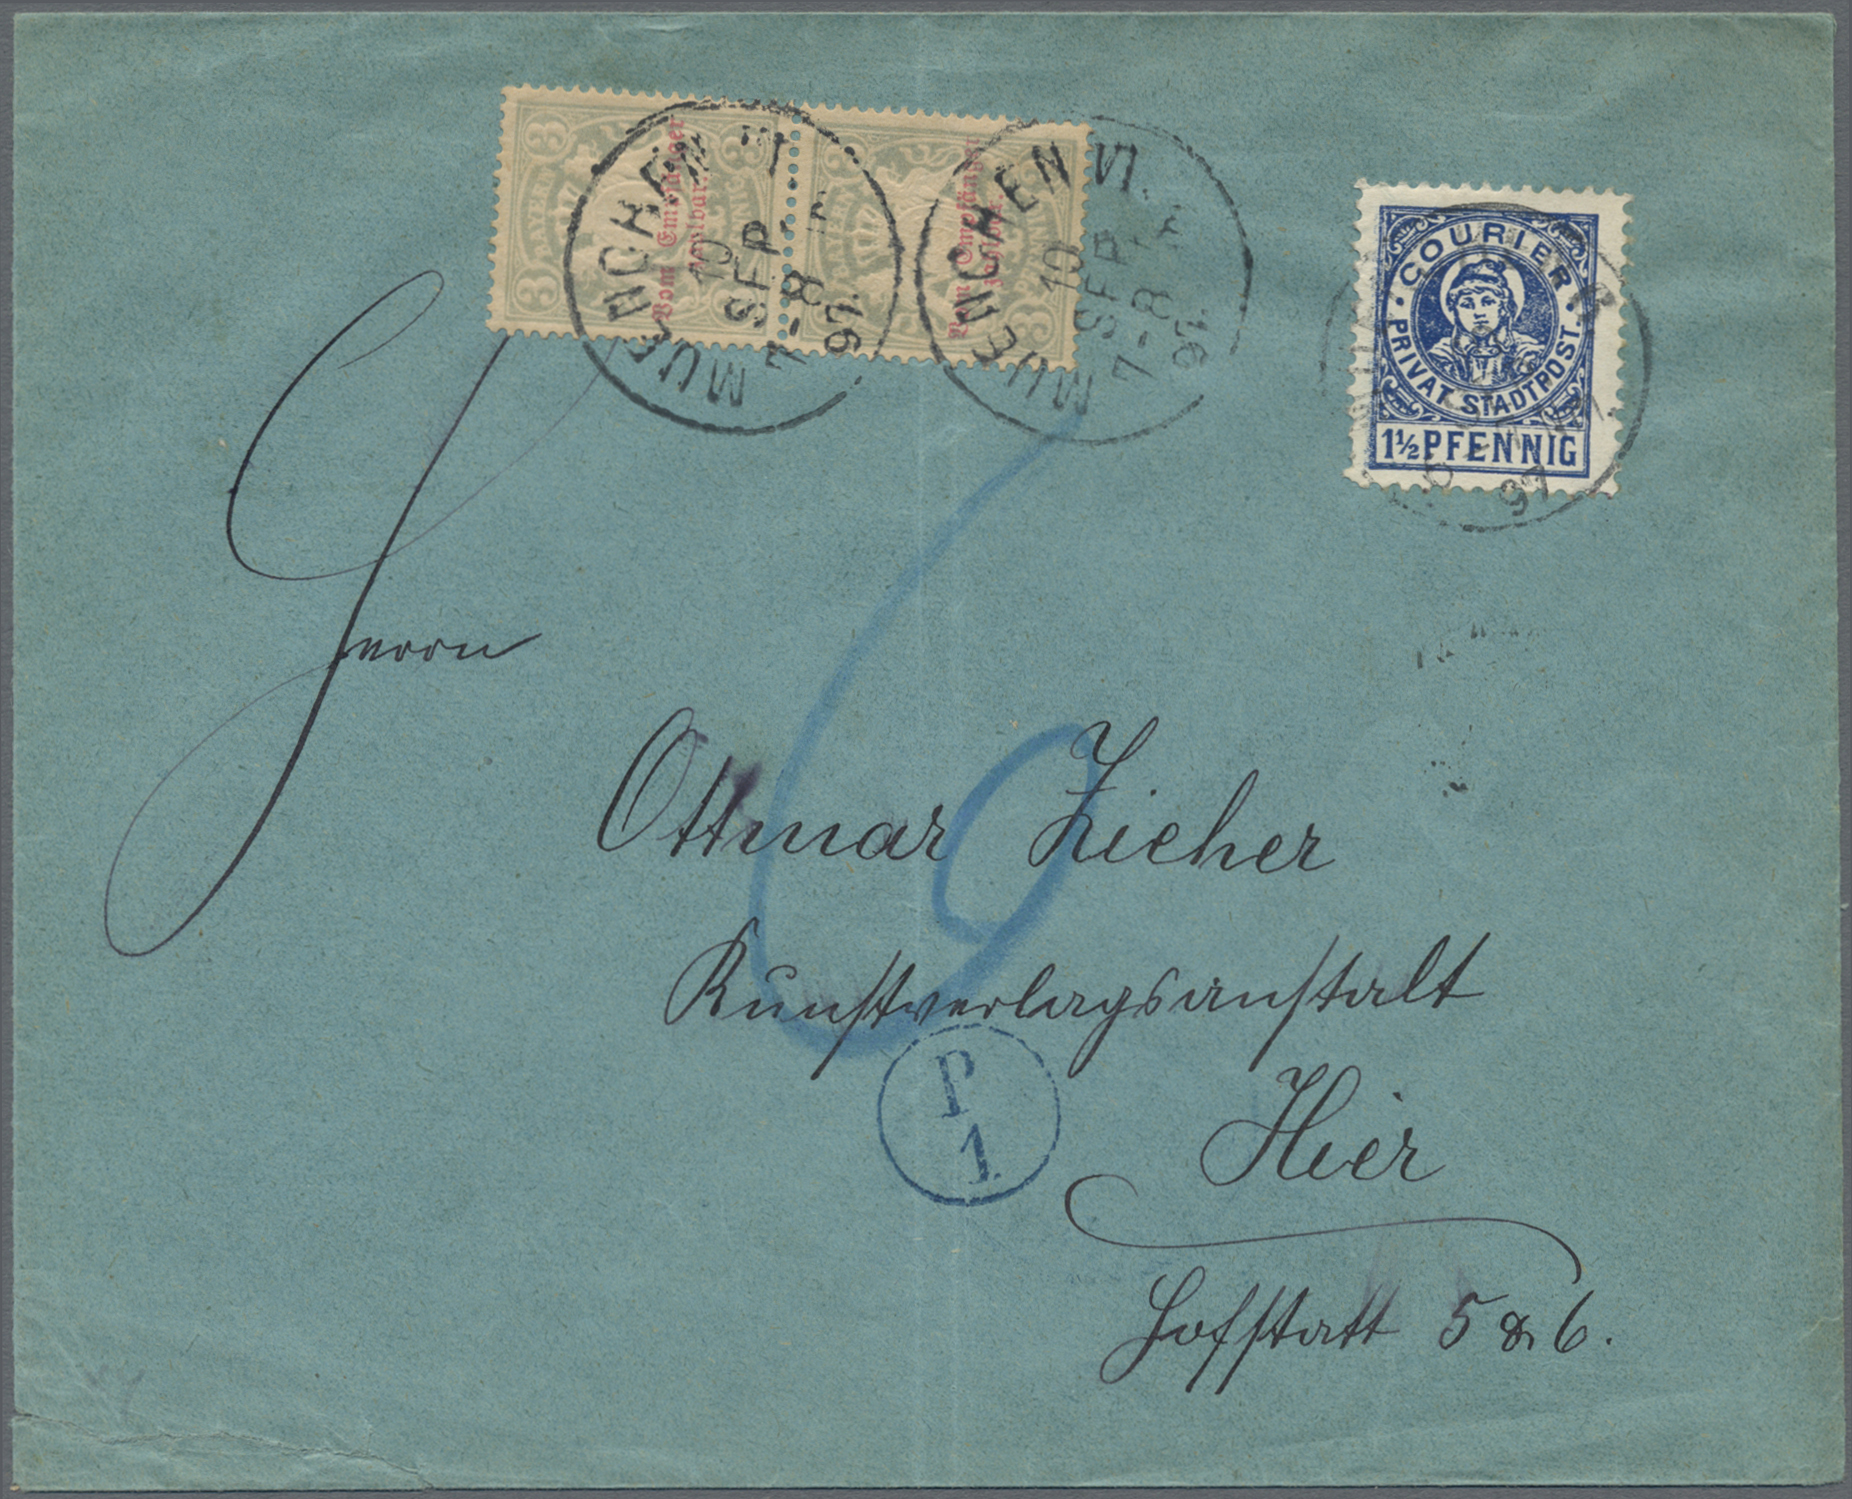 3 3
BAYERN
Vom Empfänger
zahlbar.
Vom Empfänger
zahlbar.
3
MUENCHEN VI.
10
SEP.
7-8
97.
MUENCHEN VI.
10
SEP
7-8
97.
COURIER
PRIVAT STADTPOST.
1½ PFENNIG
97
6
Herrn
Ottmar Zieher
Kunstverlagsanstalt
P
1
Hier
Hofstatt 5 & 6.